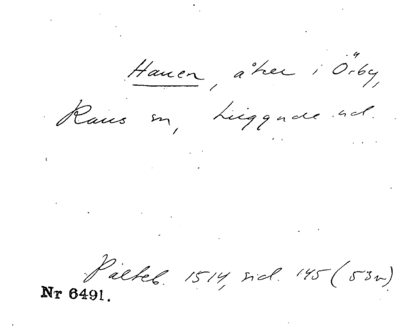 Hauen, åker i Örby,
Raus sn, Luggude hd.
Pälteb. 1514, sid. 145 (53v)
Nr 6491.